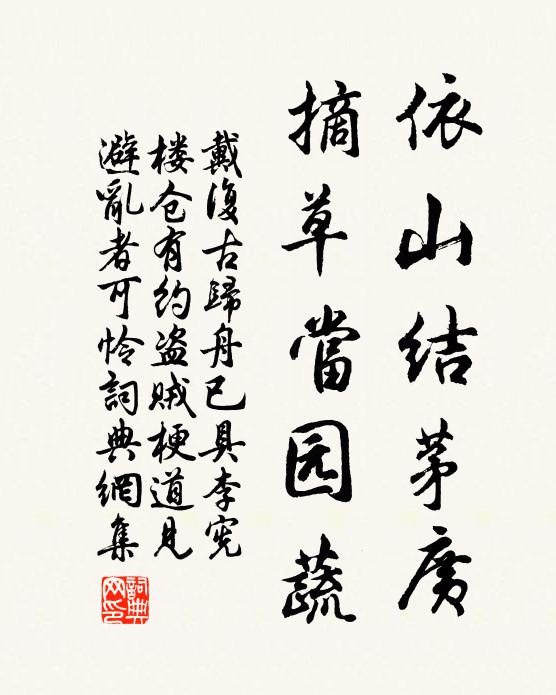 依山结茅廣
摘草當园蔬
戴復古歸舟已具李宪
楼仓有约盗贼梗道见
避亂者可怜詞典網集
詞典
网印